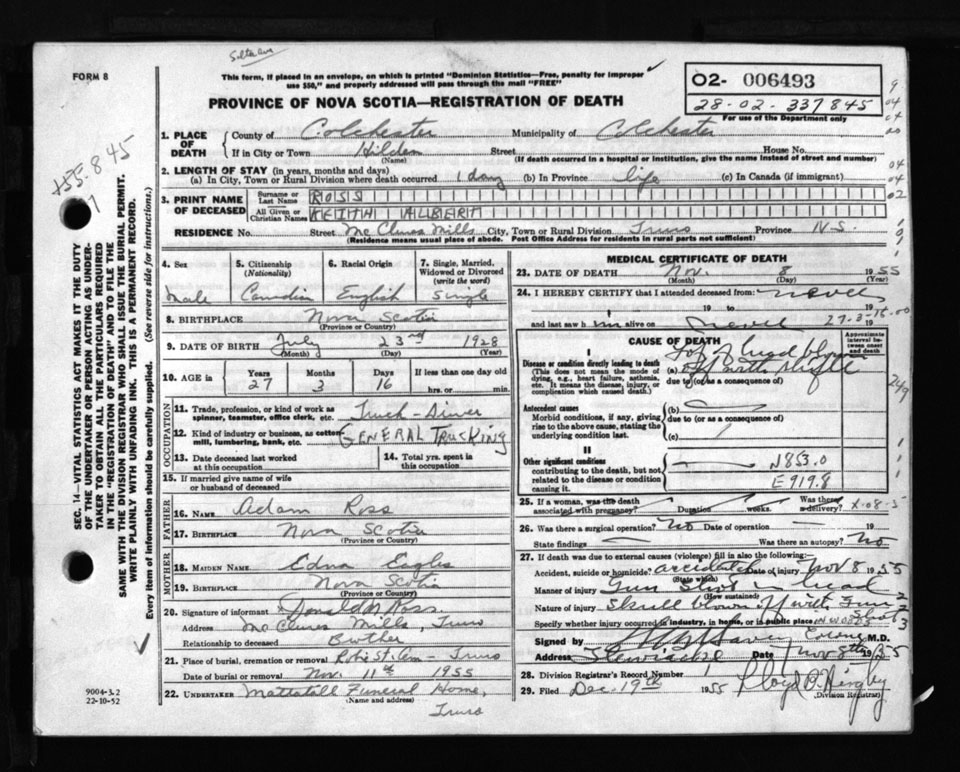 Solta Ave
FORM 8
This form, if placed in an envelope, on which is printed "Dominion Statistics—Free, penalty for improper
use $50," and properly addressed will pass through the mail "FREE"
PROVINCE OF NOVA SCOTIA—REGISTRATION OF DEATH
O2- 006493
28-02-337845
For use of the Department only
1. PLACE OF DEATH
County of Colchester Municipality of Colchester
If in City or Town Hilden Street House No.
(Name) (If death occurred in a hospital or institution, give the name instead of street and number)
2. LENGTH OF STAY (in years, months and days)
(a) In City, Town or Rural Division where death occurred 1 day (b) In Province life (c) In Canada (if immigrant)
3. PRINT NAME OF DECEASED
Surname or Last Name ROSS
All Given or Christian Names KEITH ALBERT
RESIDENCE No. Street McClures Mills City, Town or Rural Division Truro Province N.S.
(Residence means usual place of abode. Post Office Address for residents in rural parts not sufficient)
4. Sex
Male
5. Citizenship (Nationality)
Canadian
6. Racial Origin
English
7. Single, Married, Widowed or Divorced (write the word)
Single
8. BIRTHPLACE Nova Scotia
(Province or Country)
9. DATE OF BIRTH July 23rd 1928
(Month) (Day) (Year)
10. AGE in Years Months Days If less than one day
27 3 16 hrs. or min.
OCCUPATION
11. Trade, profession, or kind of work as spinner, teamster, office clerk, etc. Truck-Driver
12. Kind of industry or business, as cotton mill, lumbering, bank, etc. GENERAL TRUCKING
13. Date deceased last worked at this occupation
14. Total yrs. spent in this occupation
15. If married give name of wife or husband of deceased
FATHER
16. NAME Adam Ross
17. BIRTHPLACE Nova Scotia
(Province or Country)
MOTHER
18. MAIDEN NAME Edna Eagles
19. BIRTHPLACE Nova Scotia
(Province or Country)
20. Signature of informant Donald Ross
Address McClures Mills, Truro
Relationship to deceased Brother
21. Place of burial, cremation or removal Robie St. Cem - Truro
Date of burial or removal Nov. 11th 1955
22. UNDERTAKER Mattatall Funeral Home,
(Name and address)
Truro
MEDICAL CERTIFICATE OF DEATH
23. DATE OF DEATH Nov. 8 1955
(Month) (Day)
24. I HEREBY CERTIFY that I attended deceased from: never
19
and last saw him alive on never 19
CAUSE OF DEATH
Approximate interval between onset and death
I
Disease or condition directly leading to death
(This does not mean the mode of dying, e.g., heart failure, asthenia, etc. It means the disease, injury, or complication which caused death.)
(a) Top of head blown
off with rifle
due to (or as a consequence of)
Antecedent causes
Morbid conditions, if any, giving rise to the above cause, stating the underlying condition last.
(b)
due to (or as a consequence of)
(c)
II
Other significant conditions
contributing to the death, but not related to the disease or condition causing it.
N853.0
E919.8
25. If a woman, was the death associated with pregnancy? Duration weeks. Was there a delivery?
26. Was there a surgical operation? No Date of operation 19
State findings Was there an autopsy? No
27. If death was due to external causes (violence) fill in also the following:
Accident, suicide or homicide? accidental Date of injury Nov 8 1955
(State which)
Manner of injury Gun Shot in head
(How sustained)
Nature of injury Skull blown off with Gun
Shot
Specify whether injury occurred in industry, in home, or in public place IN WOODS
Signed by Coroner M.D.
Address Stewiacke Date Nov 8th 1955
28. Division Registrar's Record Number
29. Filed Dec. 19th 1955
(Division Registrar)
SEC. 14—VITAL STATISTICS ACT MAKES IT THE DUTY
OF THE UNDERTAKER OR PERSON ACTING AS UNDER-
TAKER TO OBTAIN ALL THE PARTICULARS REQUIRED
IN THE "REGISTRATION OF DEATH" AND TO FILE THE
SAME WITH THE DIVISION REGISTRAR WHO SHALL ISSUE THE BURIAL PERMIT.
WRITE PLAINLY WITH UNFADING INK. THIS IS A PERMANENT RECORD.
Every item of information should be carefully supplied. (See reverse side for instructions.)
9004-3.2
22-10-52